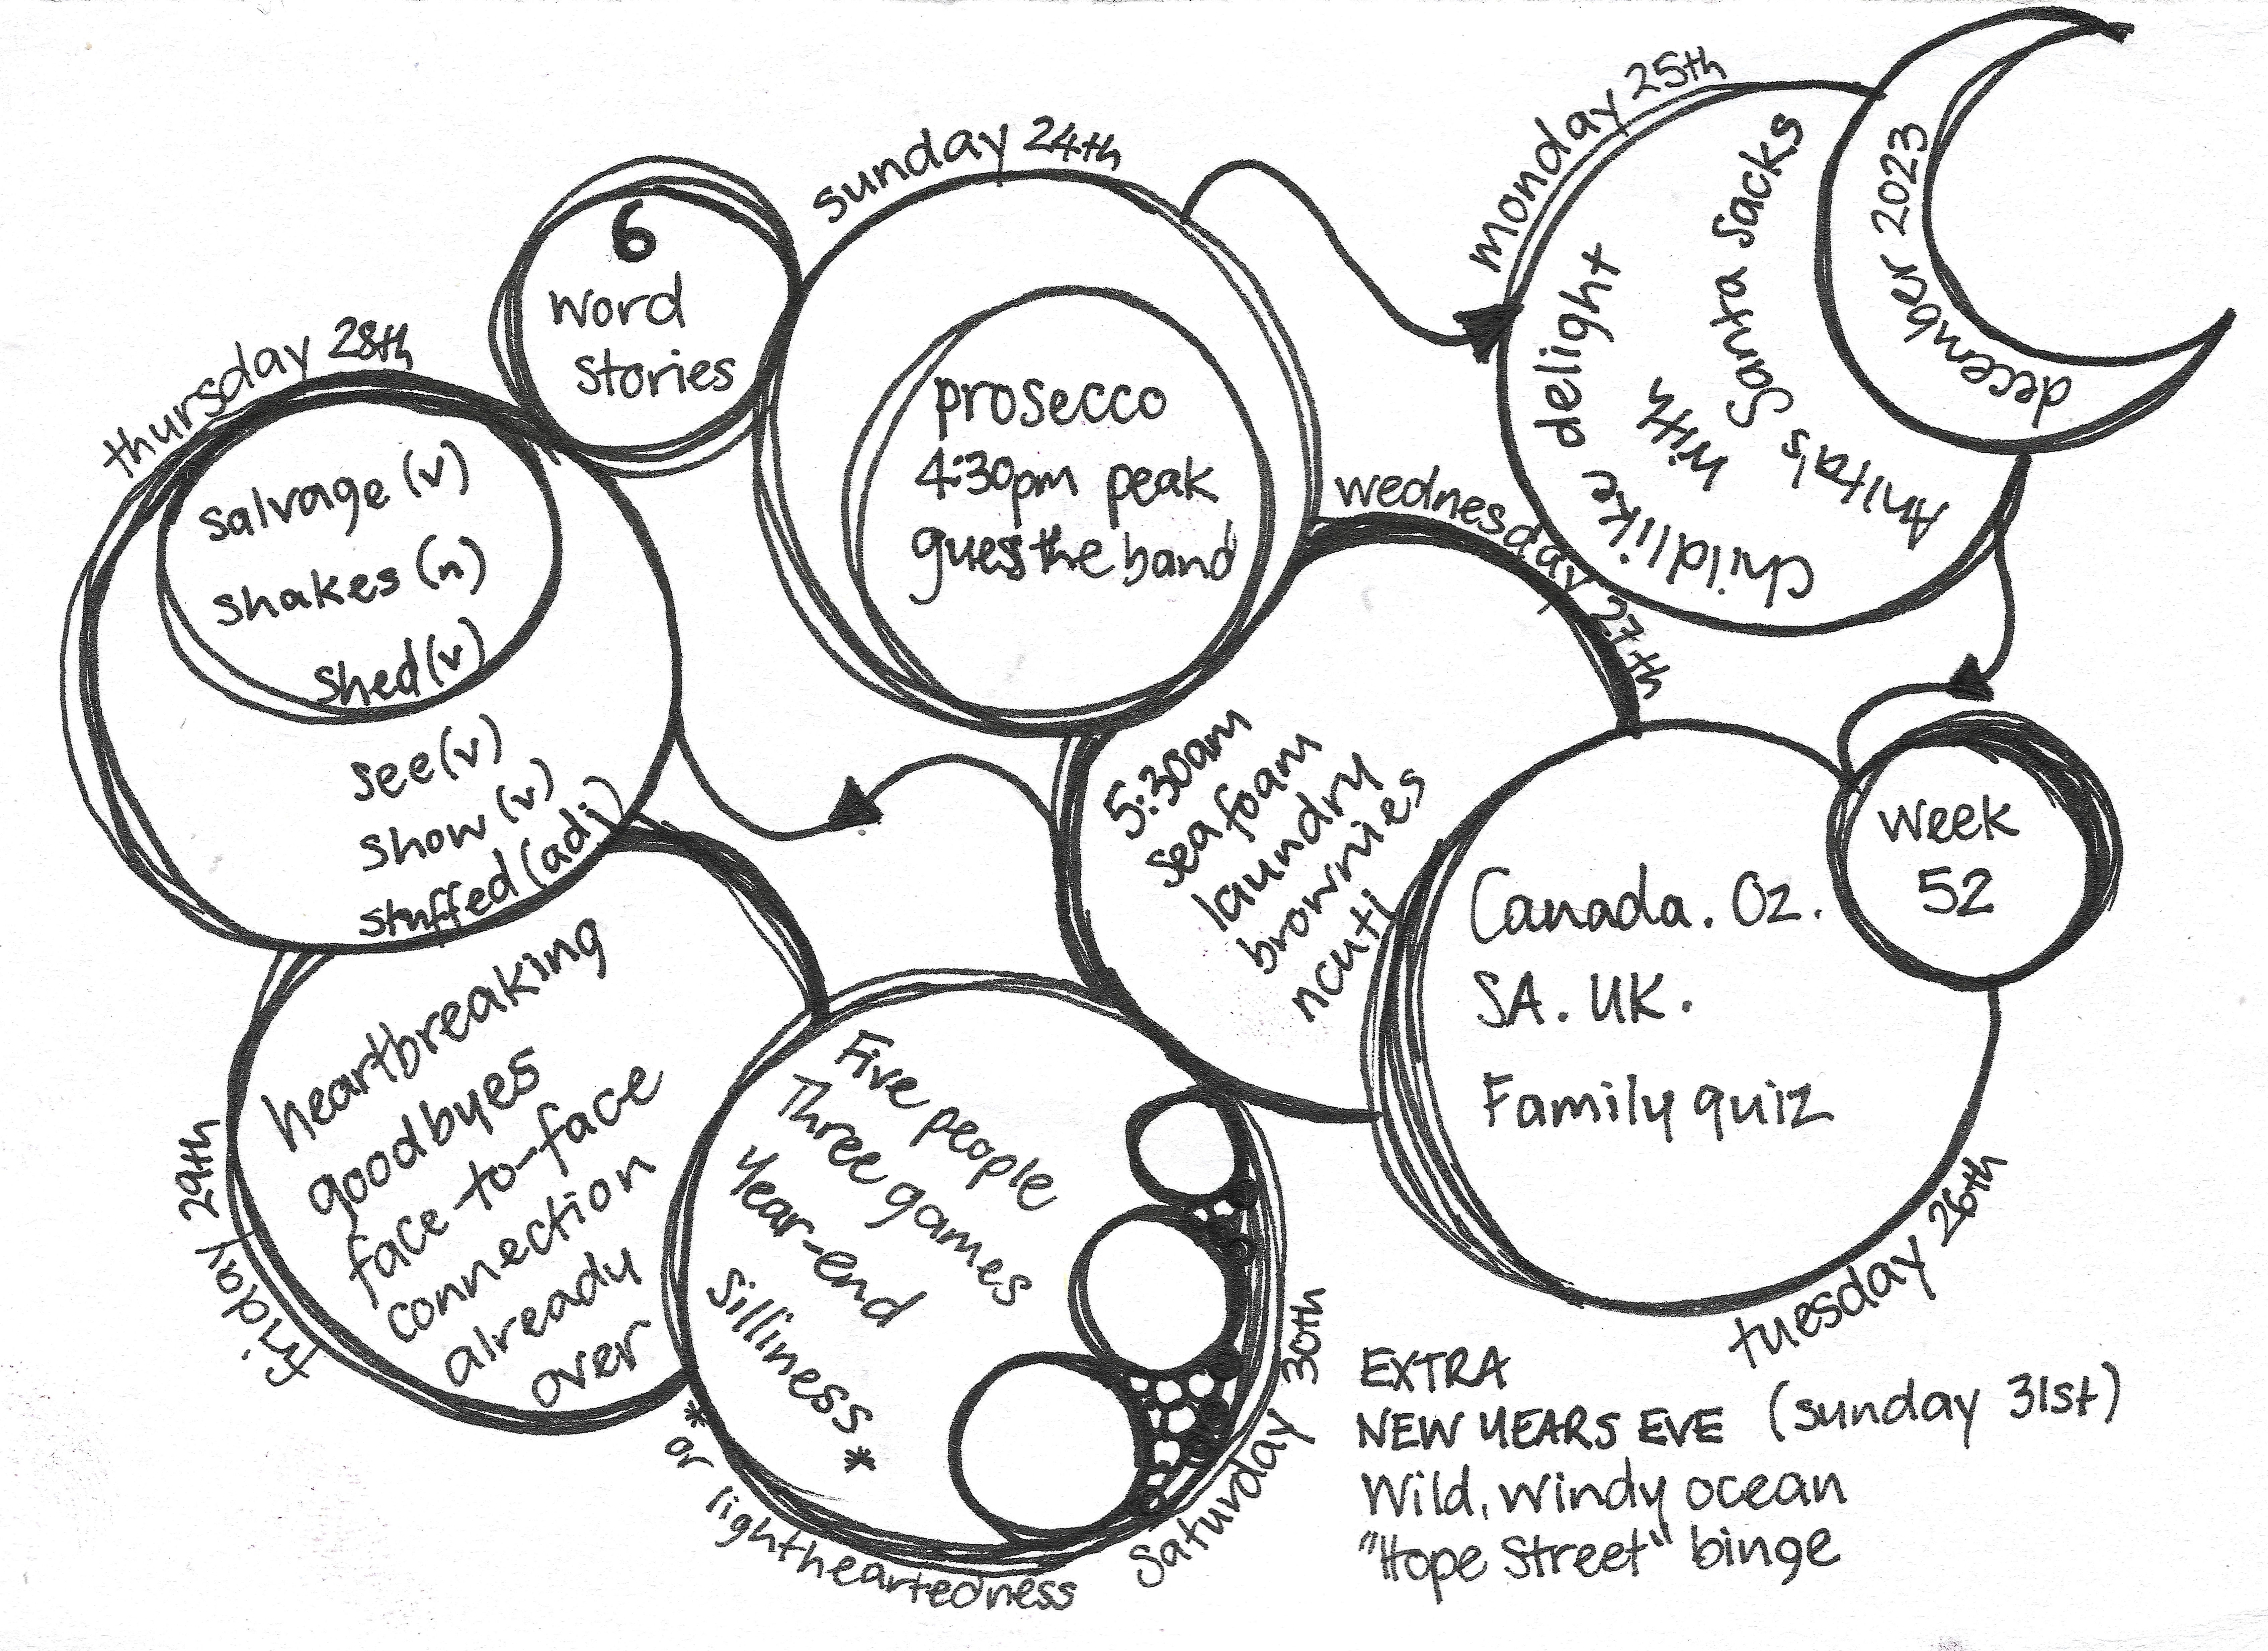 december 2023
week
52
6
word
stories
sunday 24th
prosecco
4:30pm peak
guess the band
monday 25th
Childlike delight
with
Anita's Santa Sacks
tuesday 26th
Canada. Oz.
SA. UK.
Family quiz
wednesday 27th
5:30am
seafoam
laundry
brownies
ncuti
thursday 28th
salvage (v)
shakes (n)
shed (v)
see (v)
show (v)
stuffed (adj)
friday 29th
heartbreaking
goodbyes
face-to-face
connection
already
over
Saturday 30th
Five people
Three games
Year-end
Silliness*
*or lightheartedness
EXTRA
NEW YEARS EVE (sunday 31st)
Wild, windy ocean
"Hope Street" binge